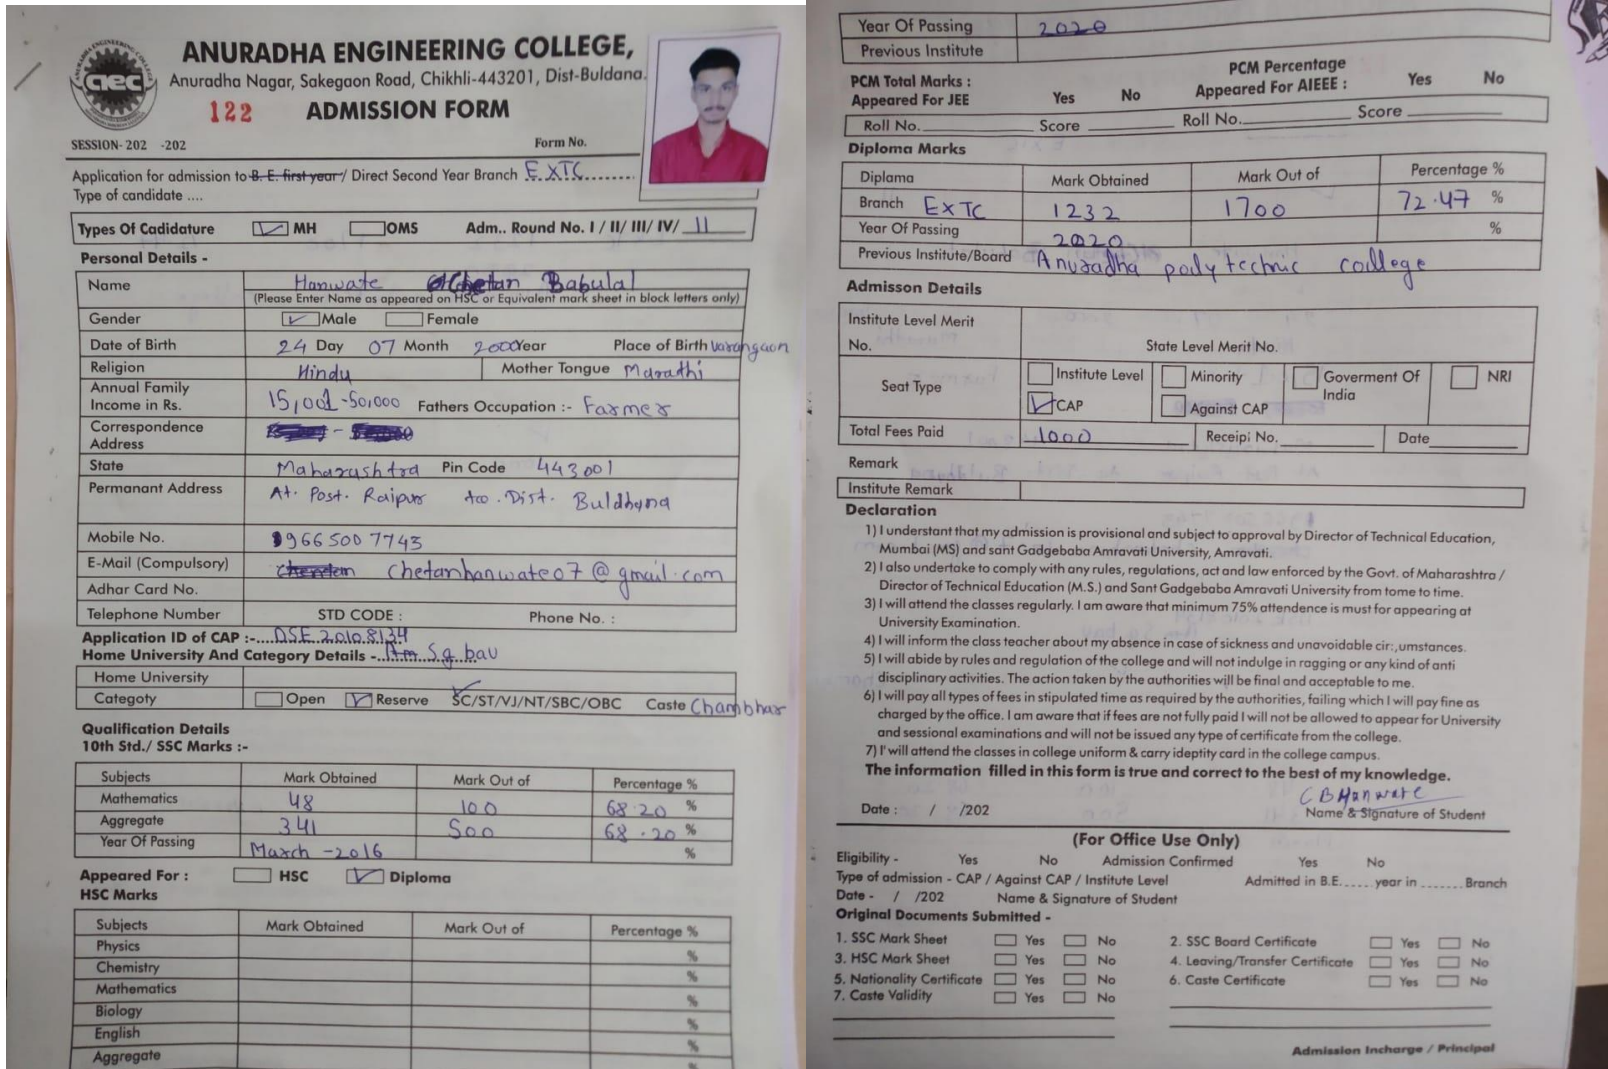 ANURADHA ENGINEERING COLLEGE,
Anuradha Nagar, Sakegaon Road, Chikhli-443201, Dist-Buldana.
aec
122 ADMISSION FORM
SESSION- 202 -202 Form No.
Application for admission to B. E. first year/ Direct Second Year Branch EXTC
Type of candidate ....
Types Of Cadidature MH OMS Adm.. Round No. I / II/ III/ IV/ II
Personal Details -
Name Hanwate Chetan Babulal
(Please Enter Name as appeared on HSC or Equivalent mark sheet in block letters only)
Gender Male Female
Date of Birth 24 Day 07 Month 2000 Year Place of Birth Varangaon
Religion Hindu Mother Tongue Marathi
Annual Family
Income in Rs. 15,001-50,000 Fathers Occupation :- Farmer
Correspondence
Address
State Maharashtra Pin Code 443001
Permanant Address At. Post. Raipur Dist. Buldhana
Mobile No. 9665007743
E-Mail (Compulsory) chetanhanwate07@gmail.com
Adhar Card No.
Telephone Number STD CODE : Phone No. :
Application ID of CAP :-....DSE20108134
Home University And Category Details -..Am S.g. bau
Home University
Categoty Open Reserve SC/ST/VJ/NT/SBC/OBC Caste Chambhar
Qualification Details
10th Std./ SSC Marks :-
Subjects Mark Obtained Mark Out of Percentage %
Mathematics 48 100 68.20 %
Aggregate 341 500 68.20 %
Year Of Passing March -2016 %
Appeared For : HSC Diploma
HSC Marks
Subjects Mark Obtained Mark Out of Percentage %
Physics %
Chemistry %
Mathematics %
Biology %
English %
Aggregate
Year Of Passing 2020
Previous Institute
PCM Total Marks : PCM Percentage
Appeared For JEE Yes No Appeared For AIEEE : Yes No
Roll No. Score Roll No. Score
Diploma Marks
Diplama Mark Obtained Mark Out of Percentage %
Branch EXTC 1232 1700 72.47 %
Year Of Passing 2020 %
Previous Institute/Board Anuradha polytechnic college
Admisson Details
Institute Level Merit
No. State Level Merit No.
Seat Type Institute Level Minority Goverment Of India NRI
CAP Against CAP
Total Fees Paid 1000 Receipi No. Date
Remark
Institute Remark
Declaration
1) I understant that my admission is provisional and subject to approval by Director of Technical Education,
Mumbai (MS) and sant Gadgebaba Amravati University, Amravati.
2) I also undertake to comply with any rules, regulations, act and law enforced by the Govt. of Maharashtra /
Director of Technical Education (M.S.) and Sant Gadgebaba Amravati University from tome to time.
3) I will attend the classes regularly. I am aware that minimum 75% attendence is must for appearing at
University Examination.
4) I will inform the class teacher about my absence in case of sickness and unavoidable cir:,umstances.
5) I will abide by rules and regulation of the college and will not indulge in ragging or any kind of anti
disciplinary activities. The action taken by the authorities will be final and acceptable to me.
6) I will pay all types of fees in stipulated time as required by the authorities, failing which I will pay fine as
charged by the office. I am aware that if fees are not fully paid I will not be allowed to appear for University
and sessional examinations and will not be issued any type of certificate from the college.
7) I' will attend the classes in college uniform & carry identity card in the college campus.
The information filled in this form is true and correct to the best of my knowledge.
CBHanwate
Date : / /202 Name & Signature of Student
(For Office Use Only)
Eligibility - Yes No Admission Confirmed Yes No
Type of admission - CAP / Against CAP / Institute Level Admitted in B.E...... year in ....... Branch
Date - / /202 Name & Signature of Student
Original Documents Submitted -
1. SSC Mark Sheet Yes No 2. SSC Board Certificate Yes No
3. HSC Mark Sheet Yes No 4. Leaving/Transfer Certificate Yes No
5. Nationality Certificate Yes No 6. Caste Certificate Yes No
7. Caste Validity Yes No
Admission Incharge / Principal